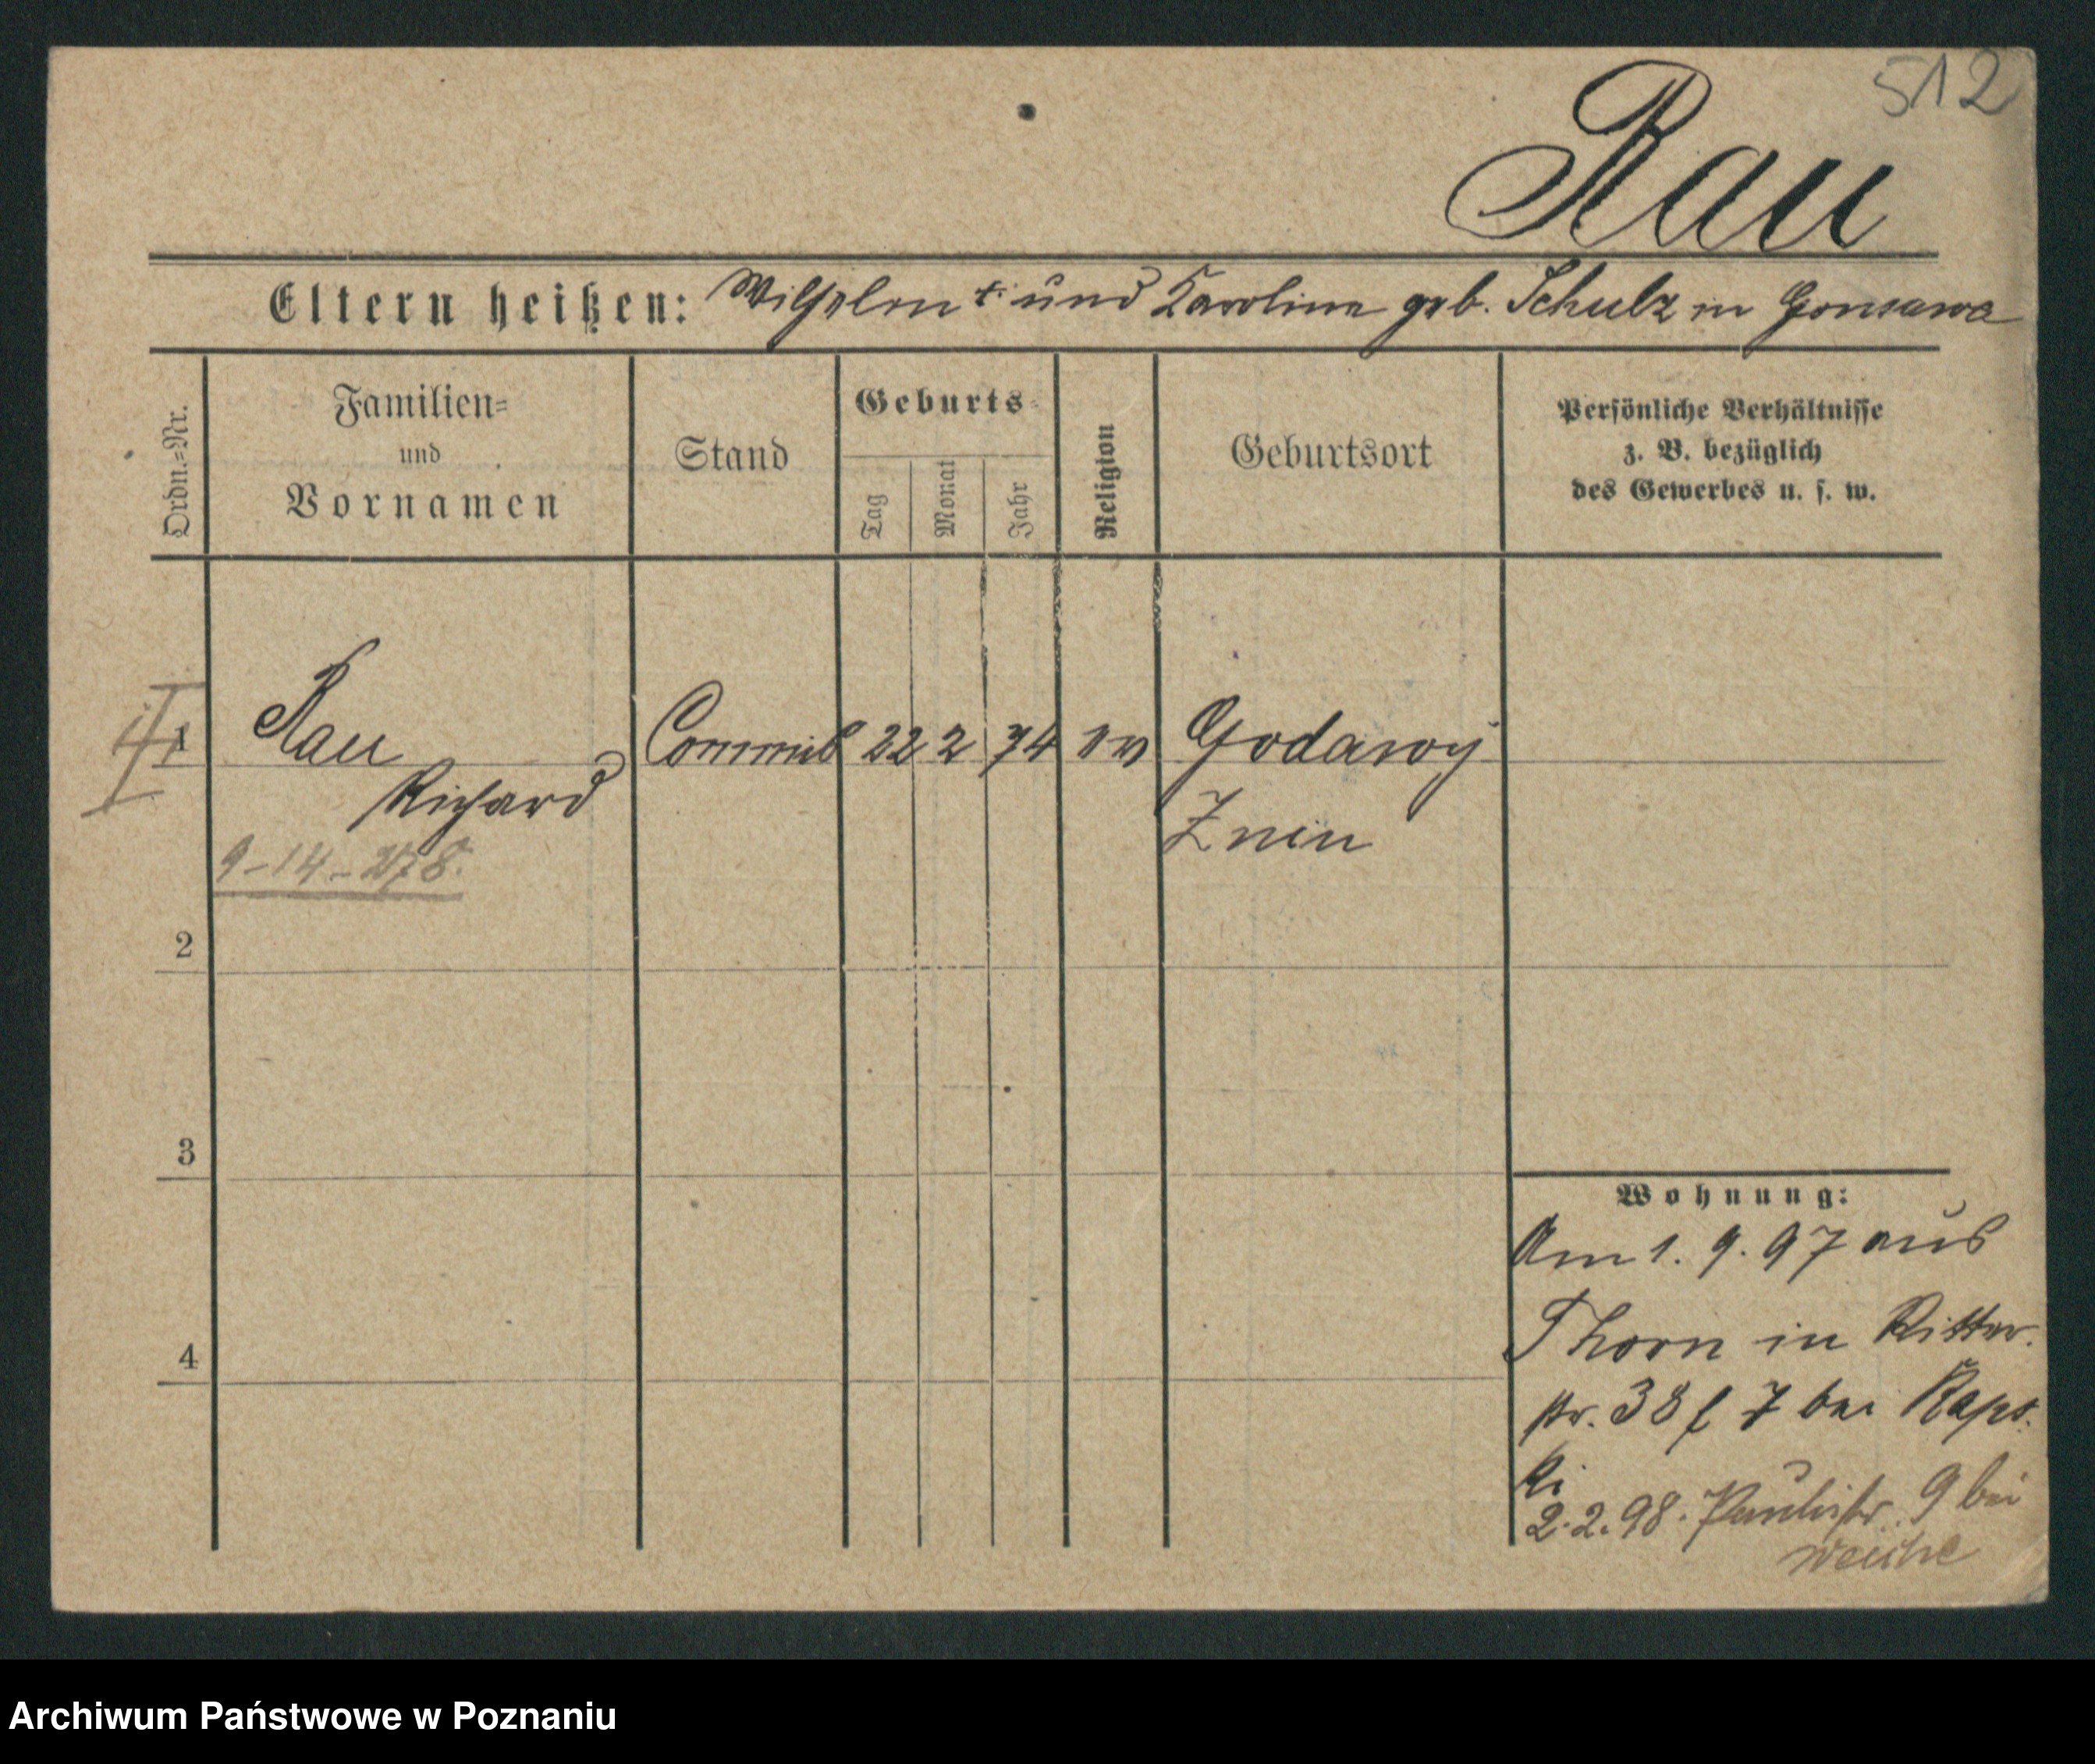 512
Rau
Eltern heißen: Wilhelm † und Karoline geb. Schulz in Gonsawa
Ordn.=Nr.
Familien=
und
Vornamen
Stand
Geburts=
Tag
Monat
Jahr
Religion
Geburtsort
Persönliche Verhältnisse
z. B. bezüglich
des Gewerbes u. s. w.
1
Rau Commis 22 2 74 ev Godawy
Richard Znin
9-14-278.
2
3
4
Wohnung:
Am 1. 9. 97 aus
Thorn in Ritter.
str. 38 7 bei Raps.
ki
2.2.98. Paulistr. 9 bei
Archiwum Państwowe w Poznaniu